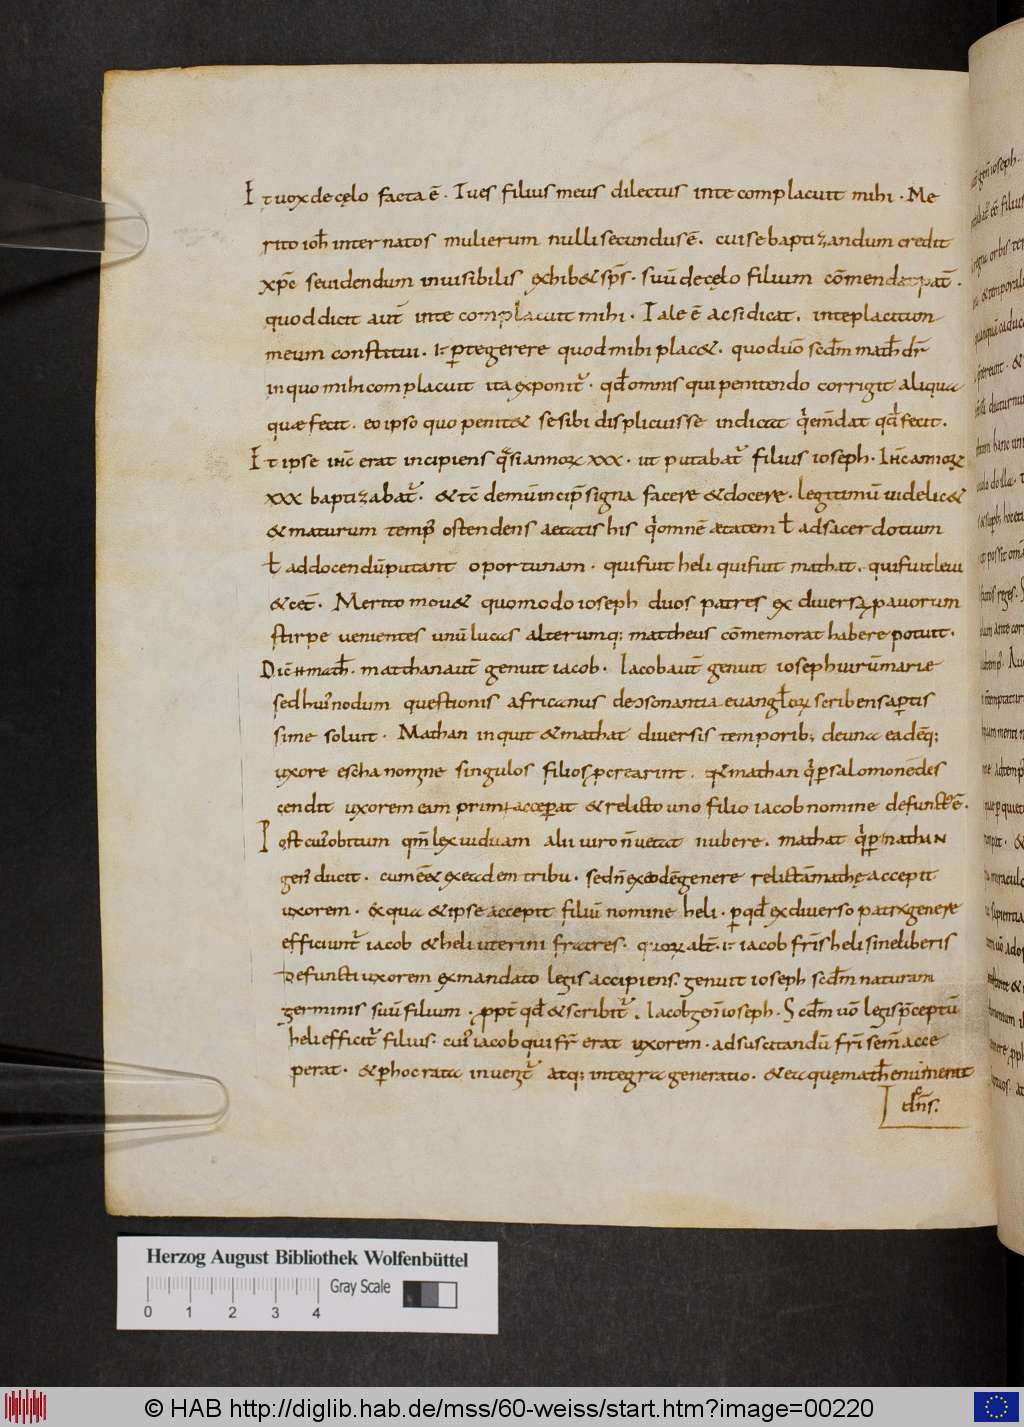 Et uox de cęlo facta ē. Tu es filius meus dilectus in te complacuit mihi. Me
rito ioh̄ inter natos mulierum nulli secundus ē. cui se baptizandum credit
xp̄c se uidendum inuisibilis exhib& sp̄s. suū de cęlo filium cōmendat pat̄.
quod dicit aut̄ in te complacuit mihi. Tale ē ac si dicat. in te placitum
meum constitui. i. p̱ te gerere quod mihi plac&. quod uō scd̄m math̄ dr̄
in quo mihi complacuit ita exponit᷑. qd̄ omnis qui penitendo corrigit aliqua
quæ fecit. eo ipso quo penit& se sibi displicuisse indicat q̓ em̄dat qd̄ fecit.
Et ipse ih̄c erat incipiens q̓si annoꝝ xxx. ut putabat᷑ filius ioseph. Ih̄c annoꝝ
xxx baptizabat᷑. & tc̄ demū incip̄ signa facere & docere. legitimū uidelic&
& maturum temp᷒ ostendens aetatis his q̓ omnē ætatem ł ad sacerdotium
ł ad docendū putant oportunam. qui fuit heli qui fuit mathat. qui fuit leui
& cet̄. Merito mou& quomodo ioseph duos patres ex diuersa p̱ auorum
stirpe uenientes unū lucas alterumq; mattheus cōmemorat habere potuit.
Dic̄ H math̄. matthan aut̄ genuit iacob. Iacob aut̄ genuit ioseph uirū marie
sed hui᷒ nodum questionis africanus de ɔsonantia euangl̄oꝝ scribens ap̱tis
sime soluit. Mathan inquit & mathat diuersis temporib; de una eadēq;
uxore escha nomine singulos filios ꝓcrearint. qa mathan q̓ p̱ salomonē des
cendit uxorem eam primū acceperat & relicto uno filio iacob nomine defunct᷒ ē.
Post cui᷒ obitum qm̄ lex uiduam alii uiro n̄ uetat nubere. mathat q̓ p̱ nathan
gen᷒ ducit. cum eēt ex eadem tribu. sed n̄ ex eodē genere relictā mathę accepit
uxorem. ex qua & ipse accepit filiū nomine heli. p̱ qd̄ ex diuerso patrū genere
efficiunt᷑ iacob & heli uterini fratres. quoꝝ alt̄. i. iacob fr̄is heli sine liberis
defuncti uxorem ex mandato legis accipiens. genuit ioseph scd̄m naturam
germinis suū filium. ꝓpt̄ qd̄ & scribit᷑. Iacob gen̄ ioseph. Scd̄m uō legis p̄ceptū
heli efficit᷑ filius. cui᷒ iacob qui fr̄ erat uxorem. ad suscitandū fr̄i sem̄ acce
perat. & p̱ hoc rata inuenit᷑ atq; integra generatio. & ea quę math̄ enumerat
dic̄ns.
Herzog August Bibliothek Wolfenbüttel
Gray Scale
0 1 2 3 4
© HAB http://diglib.hab.de/mss/60-weiss/start.htm?image=00220